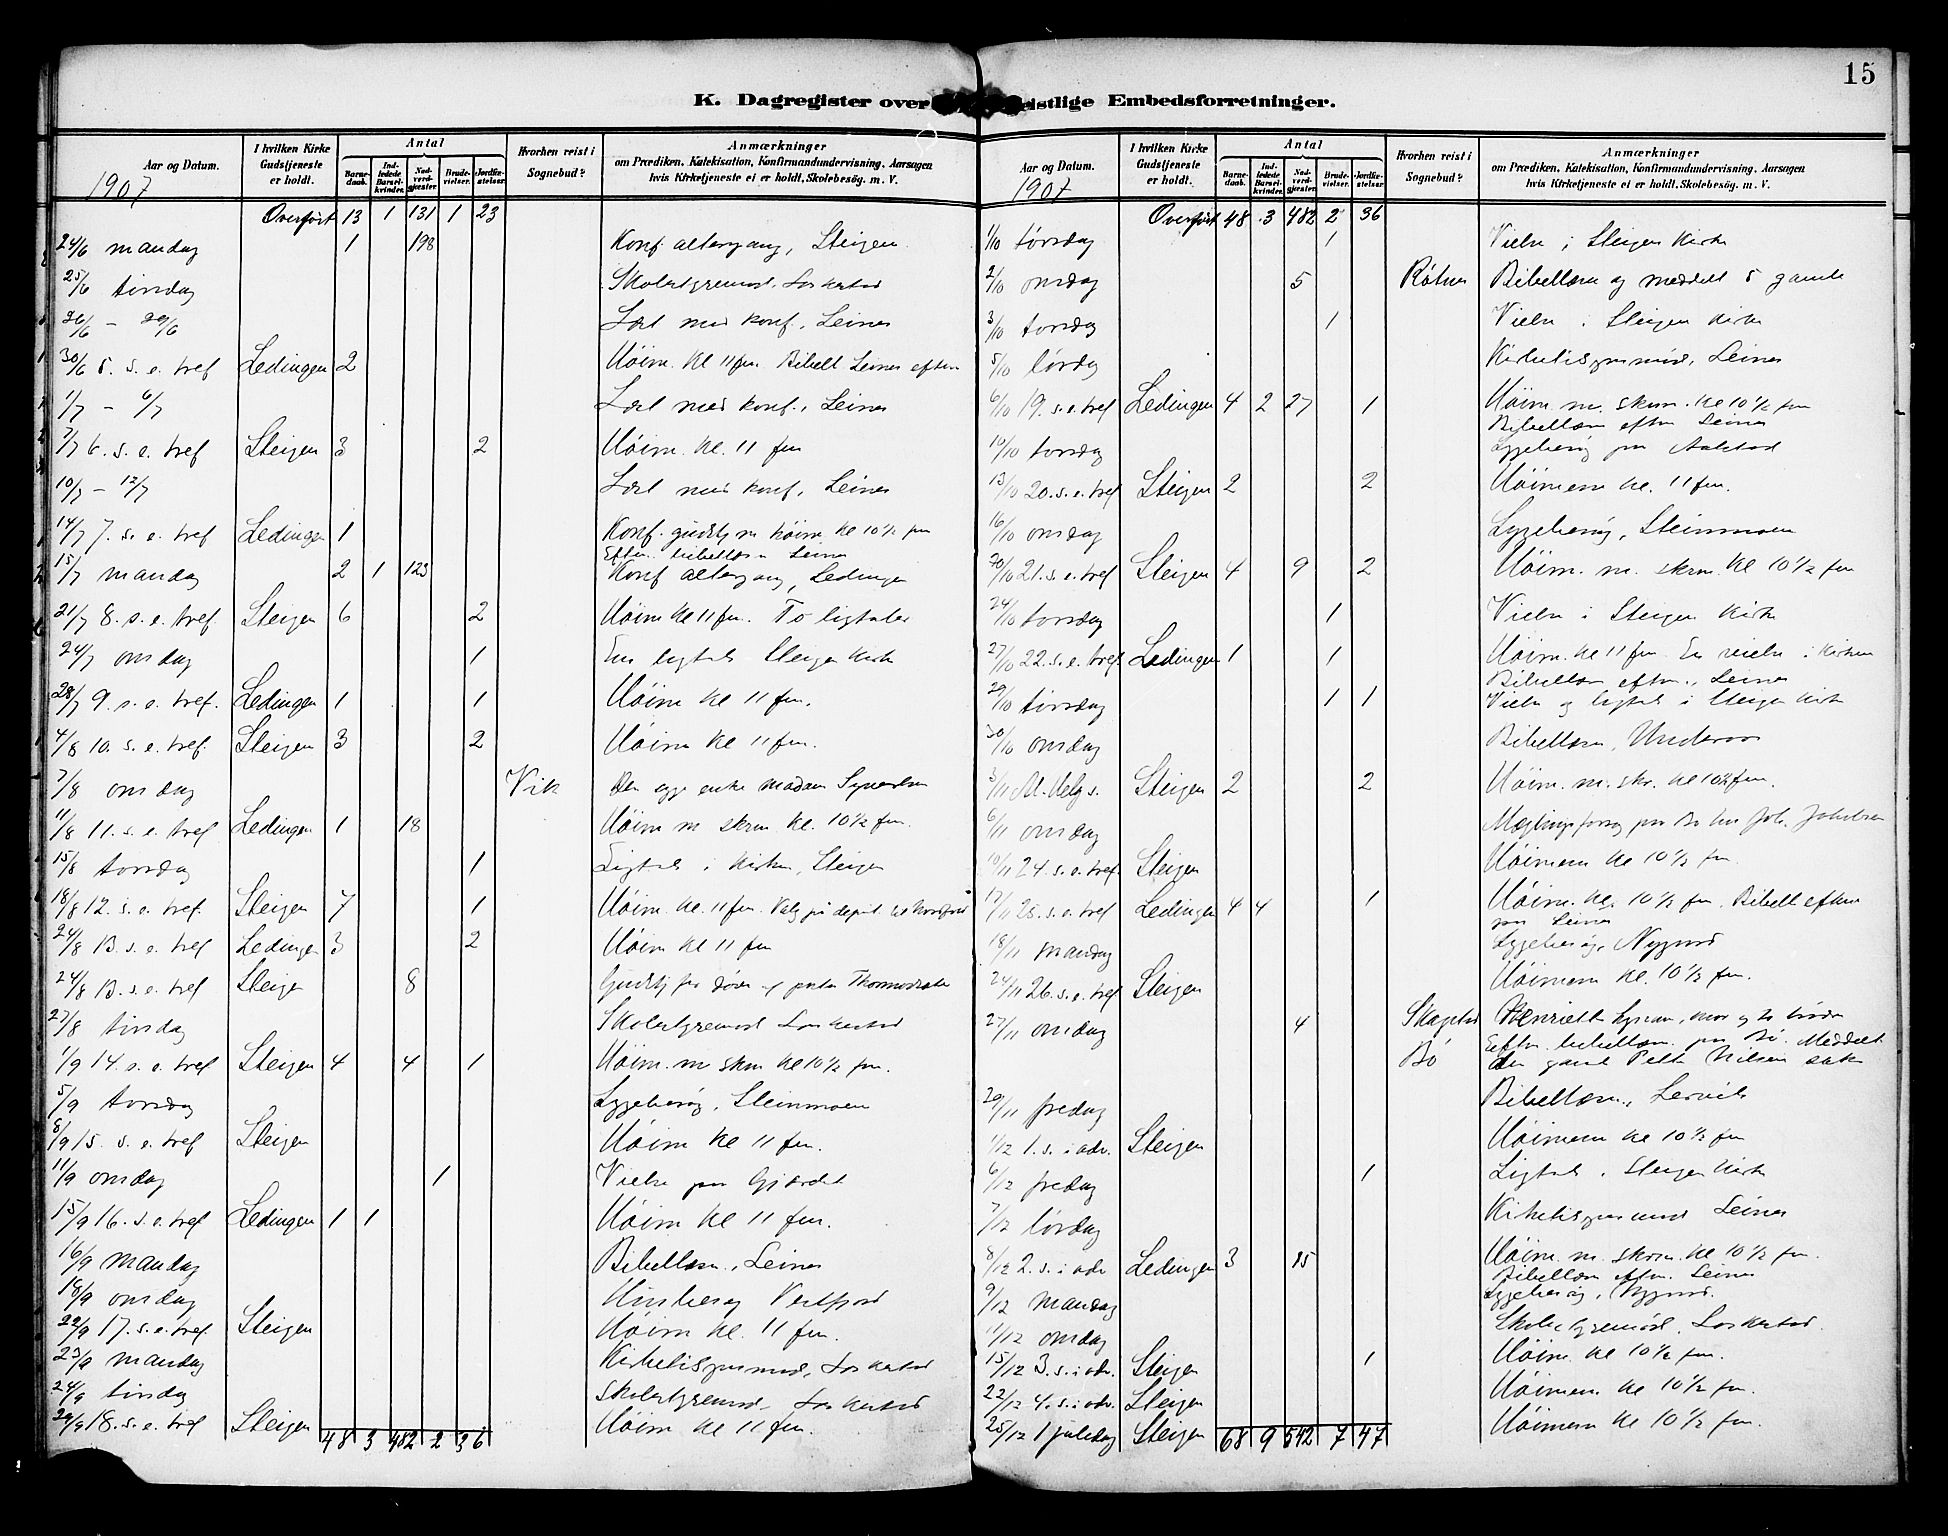 15
K. Dagregister over geistlige Embedsforretninger.
Aar og Datum. I hvilken Kirke Gudstjeneste er holdt. Antal Barnedaab. Indledede Barselkvinder. Nadverdgjæster. Brudevielser. Jordfæstelser. Hvorhen reist i Sognebud? Anmærkninger om Prædiken, Katekisation, Konfirmandundervisning, Aarsagen hvis Kirketjeneste ei er holdt, Skolebesøg. m. V.
1907
Overført 13 1 131 1 23
24/6 mandag 1 198 Konf. altergang, Steigen
25/6 tirsdag Skolestyremöd, Laskestad
26/6 - 29/6 Læst med konf., Leines
30/6 5. s. e. tref Ledingen 2 Höim. kl 11 fm. Bibell Leines efterm
1/7 - 6/7 Læst med konf., Leines
7/7 6. s. e. tref Steigen 3 2 Höim. kl. 11 fm
10/7 - 12/7 Læst med konf, Leines
14/7 7. s. e. tref Ledingen 1 Konf. gudstj m höim kl 10½ fm
Efterm. bibellæsn Leines
15/7 mandag 2 1 123 Konf altergang, Ledingen
21/7 8. s. e. tref Steigen 6 2 Höim kl 11 fm. To ligtaler
24/7 onsdag 1 En ligtale Steigen kirke
28/7 9. s. e. tref. Ledingen 1 1 Höim kl 11 fm.
4/8 10. s. e. tref. Steigen 3 2 Höim kl 11 fm.
7/8 onsdag Vik Den syge enke madam
11/8 11. s. e. tref Ledingen 1 18 Höim m skrm kl. 10½ fm.
15/8 torsdag 1 Ligtale i kirken, Steigen
18/8 12. s. e. tref. Steigen 7 1 Höim. kl. 11 fm. Valg på deput.
24/8 13. s. e. tref Ledingen 3 2 Höim kl 11 fm
24/8 13. s. e. tref Steigen 8 Gudstj for døve
27/8 tirsdag Skolestyremöd Laskestad
1/9 14. s. e. tref Steigen 4 4 1 Höim. m skrm kl 10½ fm.
5/9 torsdag Sygebesög, Steinmoen
8/9 15. s. e. tref Steigen Höim kl 11 fm.
11/9 onsdag 1 Vielse paa Gjærdet
15/9 16. s. e. tref Ledingen 1 1 Höim kl 11 fm.
16/9 mandag Bibellæsn., Leines
18/9 onsdag Husbesög
22/9 17. s. e. tref. Steigen Höim kl. 11 fm.
23/9 mandag Kirketilsynsmöd, Laskestad
24/9 tirsdag Skolestyremöd, Laskestad
29/9 18. s. e. tref Steigen Höim kl 11 fm.
48 3 482 2 36
Aar og Datum. I hvilken Kirke Gudstjeneste er holdt. Antal Barnedaab. Indledede Barselkvinder. Nadverdgjæster. Brudevielser. Jordfæstelser. Hvorhen reist i Sognebud? Anmærkninger om Prædiken, Katekisation, Konfirmandundervisning, Aarsagen hvis Kirketjeneste ei er holdt, Skolebesøg. m. V.
1907
Overført 48 3 482 2 36
1/10 tirsdag 1 Vielse i Steigen kirke
2/10 onsdag 5 Rötnes Bibellæsn og meddelt 5 gamle
3/10 torsdag 1 Vielse i Steigen kirke
5/10 lördag Kirketilsynsmöd, Leines
6/10 19. s. e. tref Ledingen 4 2 27 1 Höim. m. skrm. kl 10½ fm
Bibellæsn efterm Leines
10/10 torsdag Sygebesög paa Aalstad
13/10 20. s. e. tref Steigen 2 2 Höimem kl. 11 fm.
16/10 onsdag Sygebesög, Steinmoen
20/10 21. s. e. tref Steigen 4 9 2 Höim. m. skrm. kl 10½ fm
24/10 torsdag 1 Vielse i Steigen kirke
27/10 22. s. e. tref. Ledingen 1 1 Höim. kl 11 fm. En vielse i kirken
Bibellæsn efterm., Leines
29/10 tirsdag 1 1 Vielse og ligtale i Steigen kirke
30/10 onsdag Bibellæsn,
3/11 Al. Helg s. Steigen 2 2 Höim. m. skr. kl 10½ fm.
6/11 onsdag Mæglingsforsög paa Bø hos Joh. Jakobsen
10/11 24. s. e. tref. Steigen Höimem kl 10½ fm.
17/11 25. s. e. tref Ledingen 4 4 1 Höim. kl. 10½ fm. Bibell efterm
paa Leines
18/11 mandag Sygebesög,
24/11 26. s. e. tref Steigen Höimem kl. 10½ fm.
27/11 onsdag 4 Skagstad Henriette
Bö Efterm. bibellæsn. paa Bö. Meddelt
den gamle Nilsen
29/11 fredag Bibellæsn., Lervik
1/12 1. s. i adv. Steigen Höimem kl 10½ fm
6/12 fredag 1 Ligtale i Steigen kirke
7/12 lördag Kirketilsynsmöd Leines
8/12 2. s. i adv Ledingen 3 15 Höim. m. skrm. kl 10½ fm.
Bibellæsn efterm. Leines
9/12 mandag Sygebesög,
11/12 onsdag Skolestyremöd, Laskestad.
15/12 3. s. i adv. Steigen 1 Höim. kl 10½ fm.
22/12 4. s. i adv. Steigen Höimem kl. 10½ fm.
25/12 1 juledag Steigen Höimem kl 10½ fm.
68 9 542 7 47